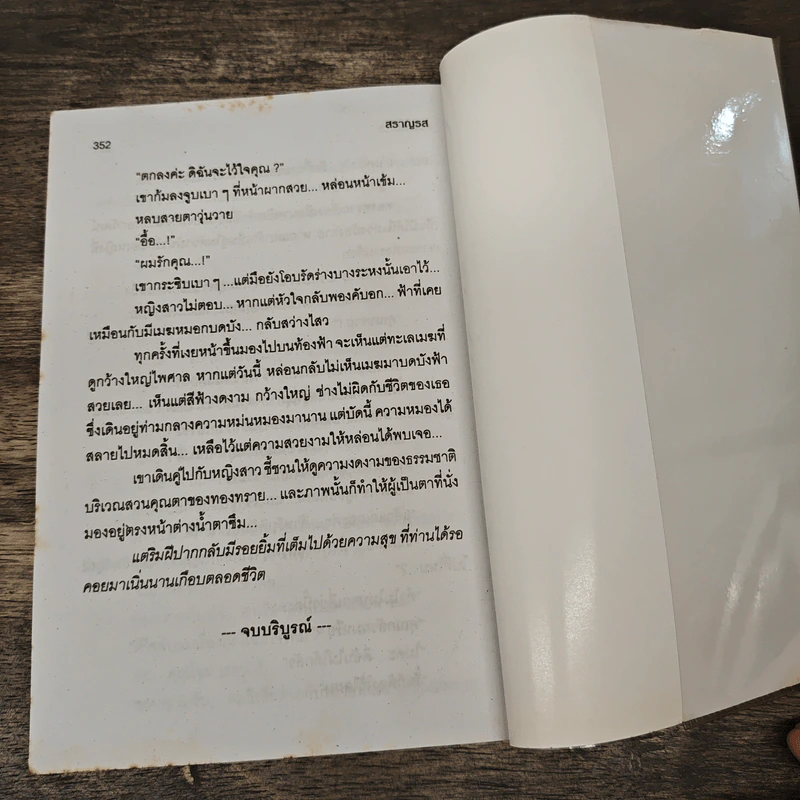 352
สราญรส
“ตกลงค่ะ ดิฉันจะไว้ใจคุณ ?”
เขาก้มลงจูบเบา ๆ ที่หน้าผากสวย... หล่อนหน้าเข้ม...
หลบสายตาวุ่นวาย
“อื้อ...!”
“ผมรักคุณ...!”
เขากระซิบเบา ๆ ...แต่มือยังโอบรัดร่างบางระหงนั้นเอาไว้...
หญิงสาวไม่ตอบ... หากแต่หัวใจกลับพองคับอก... ฟ้าที่เคย
เหมือนกับมีเมฆหมอกบดบัง... กลับสว่างไสว
ทุกครั้งที่เงยหน้าขึ้นมองไปบนท้องฟ้า จะเห็นแต่ทะเลเมฆที่
ดูกว้างใหญ่ไพศาล หากแต่วันนี้ หล่อนกลับไม่เห็นเมฆมาบดบังฟ้า
สวยเลย... เห็นแต่สีฟ้างดงาม กว้างใหญ่ ช่างไม่ผิดกับชีวิตของเธอ
ซึ่งเดินอยู่ท่ามกลางความหม่นหมองมานาน แต่บัดนี้ ความหมองได้
สลายไปหมดสิ้น... เหลือไว้แต่ความสวยงามให้หล่อนได้พบเจอ...
เขาเดินคู่ไปกับหญิงสาว ชี้ชวนให้ดูความงดงามของธรรมชาติ
บริเวณสวนคุณตาของทองทราย... และภาพนั้นก็ทำให้ผู้เป็นตาที่นั่ง
มองอยู่ตรงหน้าต่างน้ำตาซึม...
แต่ริมฝีปากกลับมีรอยยิ้มที่เต็มไปด้วยความสุข ที่ท่านได้รอ
คอยมาเนิ่นนานเกือบตลอดชีวิต
--- จบบริบูรณ์ ---